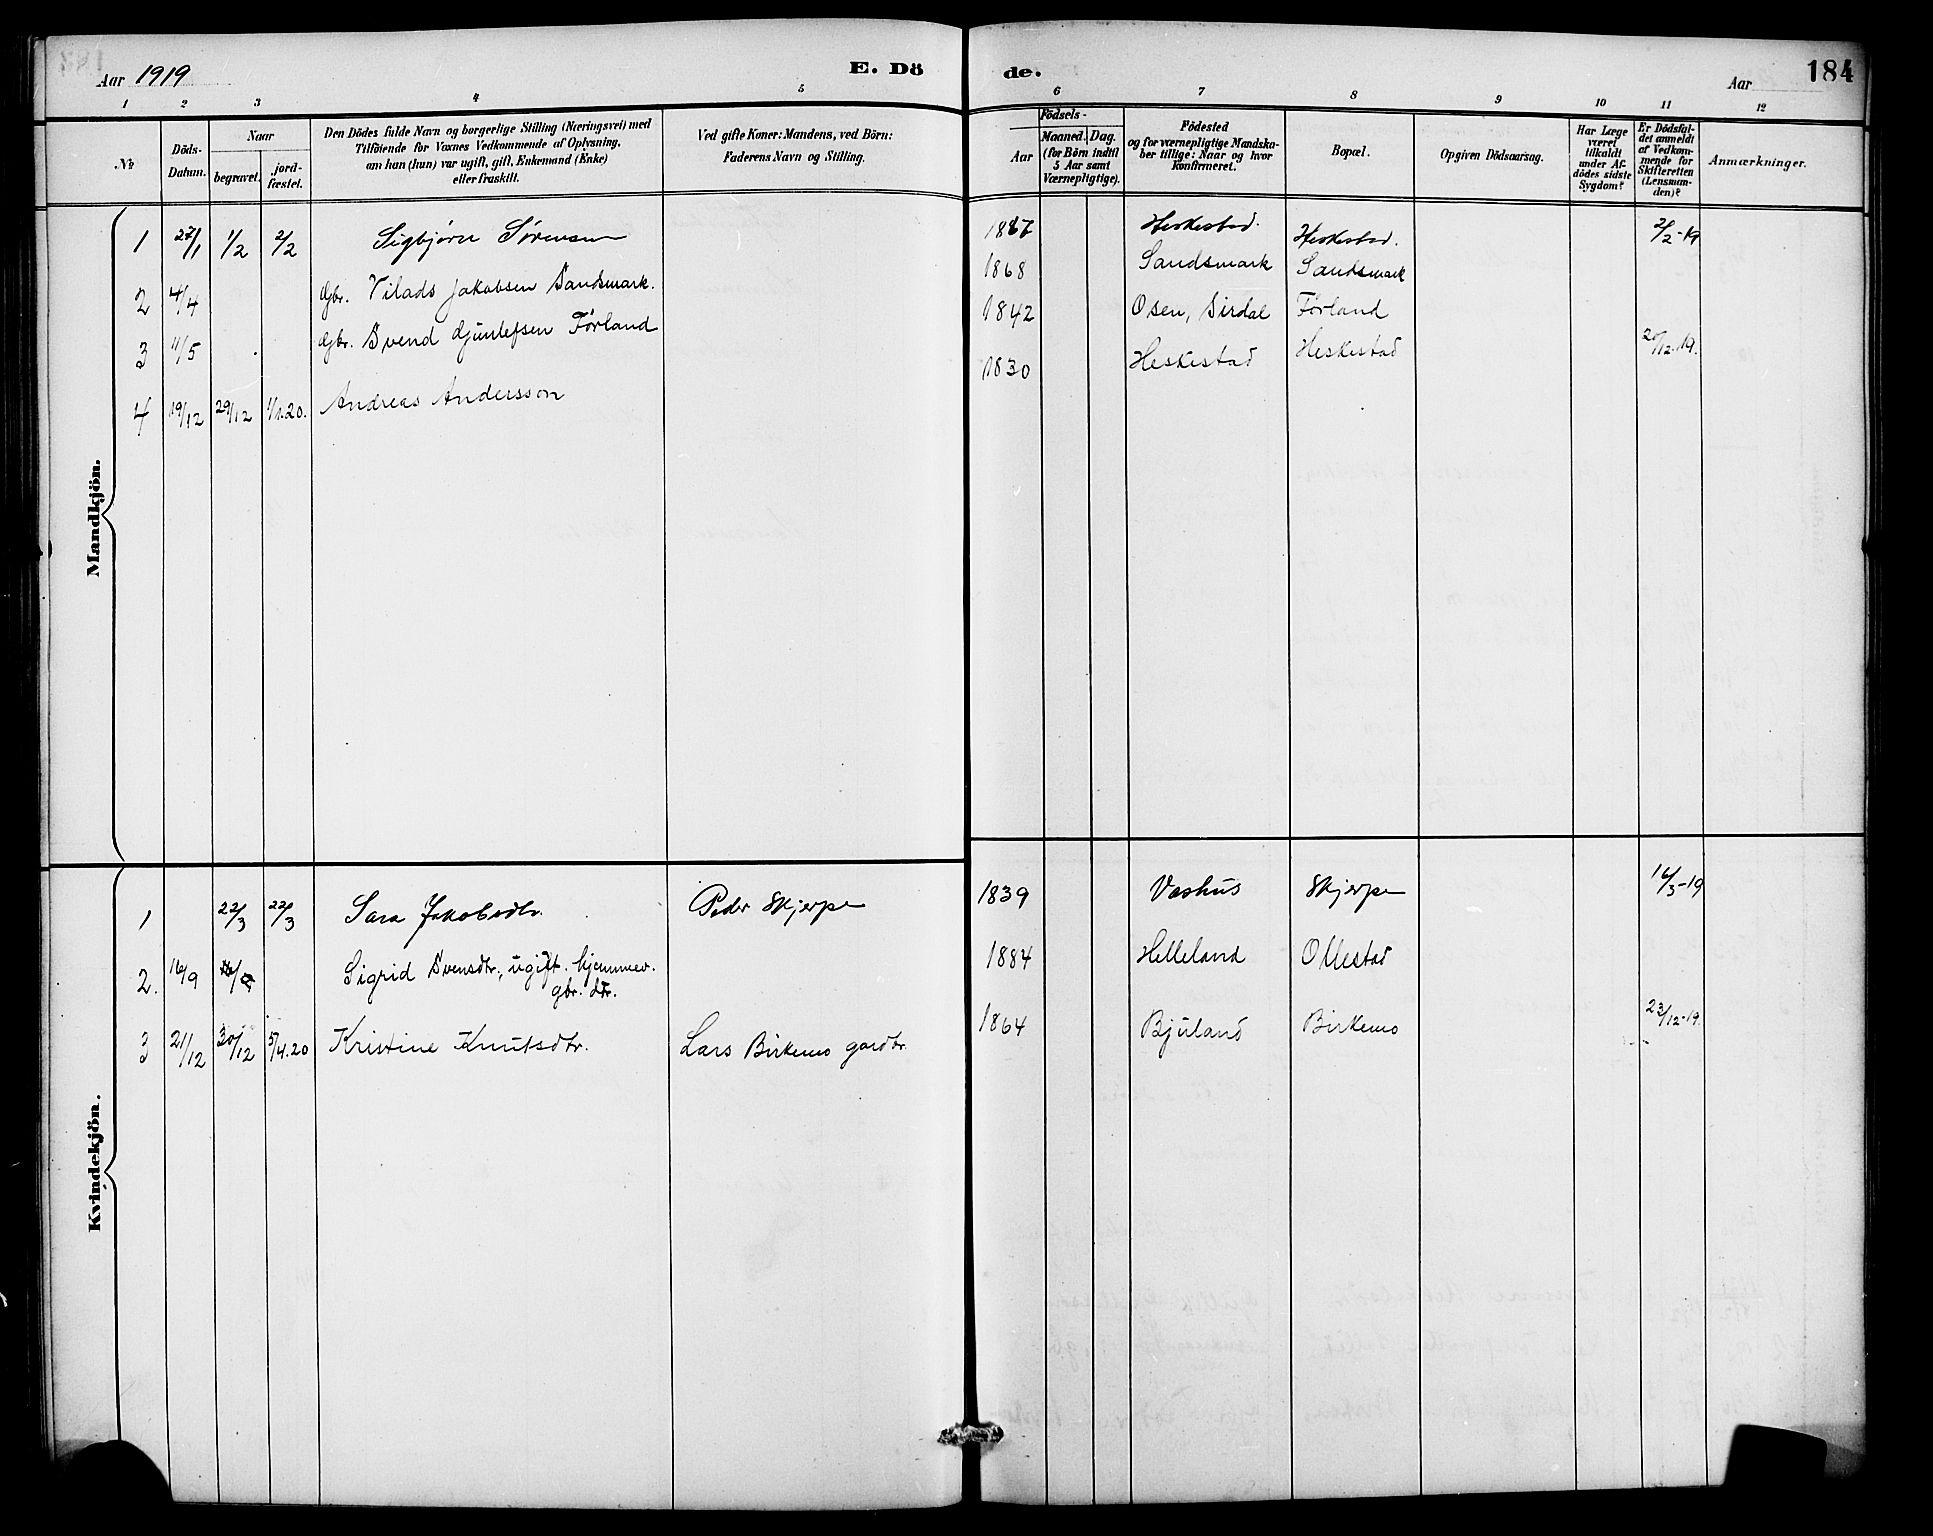 Aar 1919
E. Dö
de.
Aar
184
1 2 3 4 5 6 7 8 9 10 11 12
№
Döds-
Datum.
Naar
begravet.
jord-
fæstet.
Den Dödes fulde Navn og borgerlige Stilling (Næringsvei) med
Tilföiende for Voxnes Vedkommende af Oplysning,
om han (hun) var ugift, gift, Enkemand (Enke)
eller fraskilt.
Ved gifte Koner: Mandens, ved Börn:
Faderens Navn og Stilling.
Födsels-
Aar
Maaned. Dag.
(for Börn indtil
5 Aar samt
Værnepligtige).
Födested
og for værnepligtige Mandska-
ber tillige: Naar og hvor
konfirmeret.
Bopæl.
Opgiven Dödsaarsag.
Har Læge
været
tilkaldt
under Af-
dödes sidste
Sygdom?
Er Dödsfal-
det anmeldt
af Vedkom-
mende for
Skifteretten
(Lensman-
den)?
Anmærkninger.
Mandkjön.
1 27/1 1/2 2/2 Sigbjørn Sørensen 1867 Heskestad. Heskestad. 2/2-19
2 4/4 Gbr. Vilads Jakobsen Sandsmark. 1868 Sandsmark Sandsmark
3 11/5 Gbr. Svend Gjunlefsen Førland 1842 Osen, Sirdal Førland
4 19/12 29/12 1/1.20. Andreas Andersson 1830 Heskestad Heskestad 20/12-19.
Kvindekjön.
1 22/3 22/3 Sara Jakobsdtr. Peder Skjerpe 1839 Vashus Skjerpe 16/3-19
2. 16/9 Sigrid Svensdtr., ugift. hjemmev. 1884 Helleland Ollestad
gbr. dtr.
3 21/12 30/12 5/4.20 Kristine Knutsdtr. Lars Birkemo gardbr. 1864 Bjuland Birkemo 23/12-19.